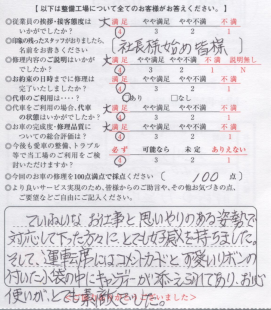 【以下は整備工場について全てのお客様がお答えください。】
◎従業員の挨拶・接客態度は 大満足 やや満足 やや不満 不満
いかがでしたか？ 4 3 2 1
◎印象の残ったスタッフがおりましたら、
名前をお書きください [社長様始め皆様]
◎修理内容のご説明はいかがでしたか？ 大満足 やや満足 やや不満 不満 説明無し
4 3 2 1 N
◎お約束の日時までに修理は 大満足 やや満足 やや不満 不満
完了いたしましたか？ 4 3 2 1
◎代車をご利用は・・・？ あり □なし
◎代車をご利用の場合、代車 大満足 やや満足 やや不満 不満
の状態はいかがでしたか？ 4 3 2 1
◎お車の完成度・修理品質に 大満足 やや満足 やや不満 不満
ついての総合評価は？ 4 3 2 1
◎今後も愛車の整備、トラブル 必ず 可能なら 未定 ありえない
等で当工場のご利用をご検 4 3 2 1
討いただけますか？
◎今回のお車の修理を100点満点で採点ください (100 点)
◎より良いサービス実現のため、皆様からのご助言や、その他お気づきの点、
ご要望などご自由にご記入ください。
ていねいな お仕事と思いやりのある姿勢で
対応して下った方々に とても好感を持ちました。
そして、運転席にはコメントカードと可愛いリボンの
付いた小袋の中にキャンディーが添えられてあり、お心
使いが、とても素敵でした。